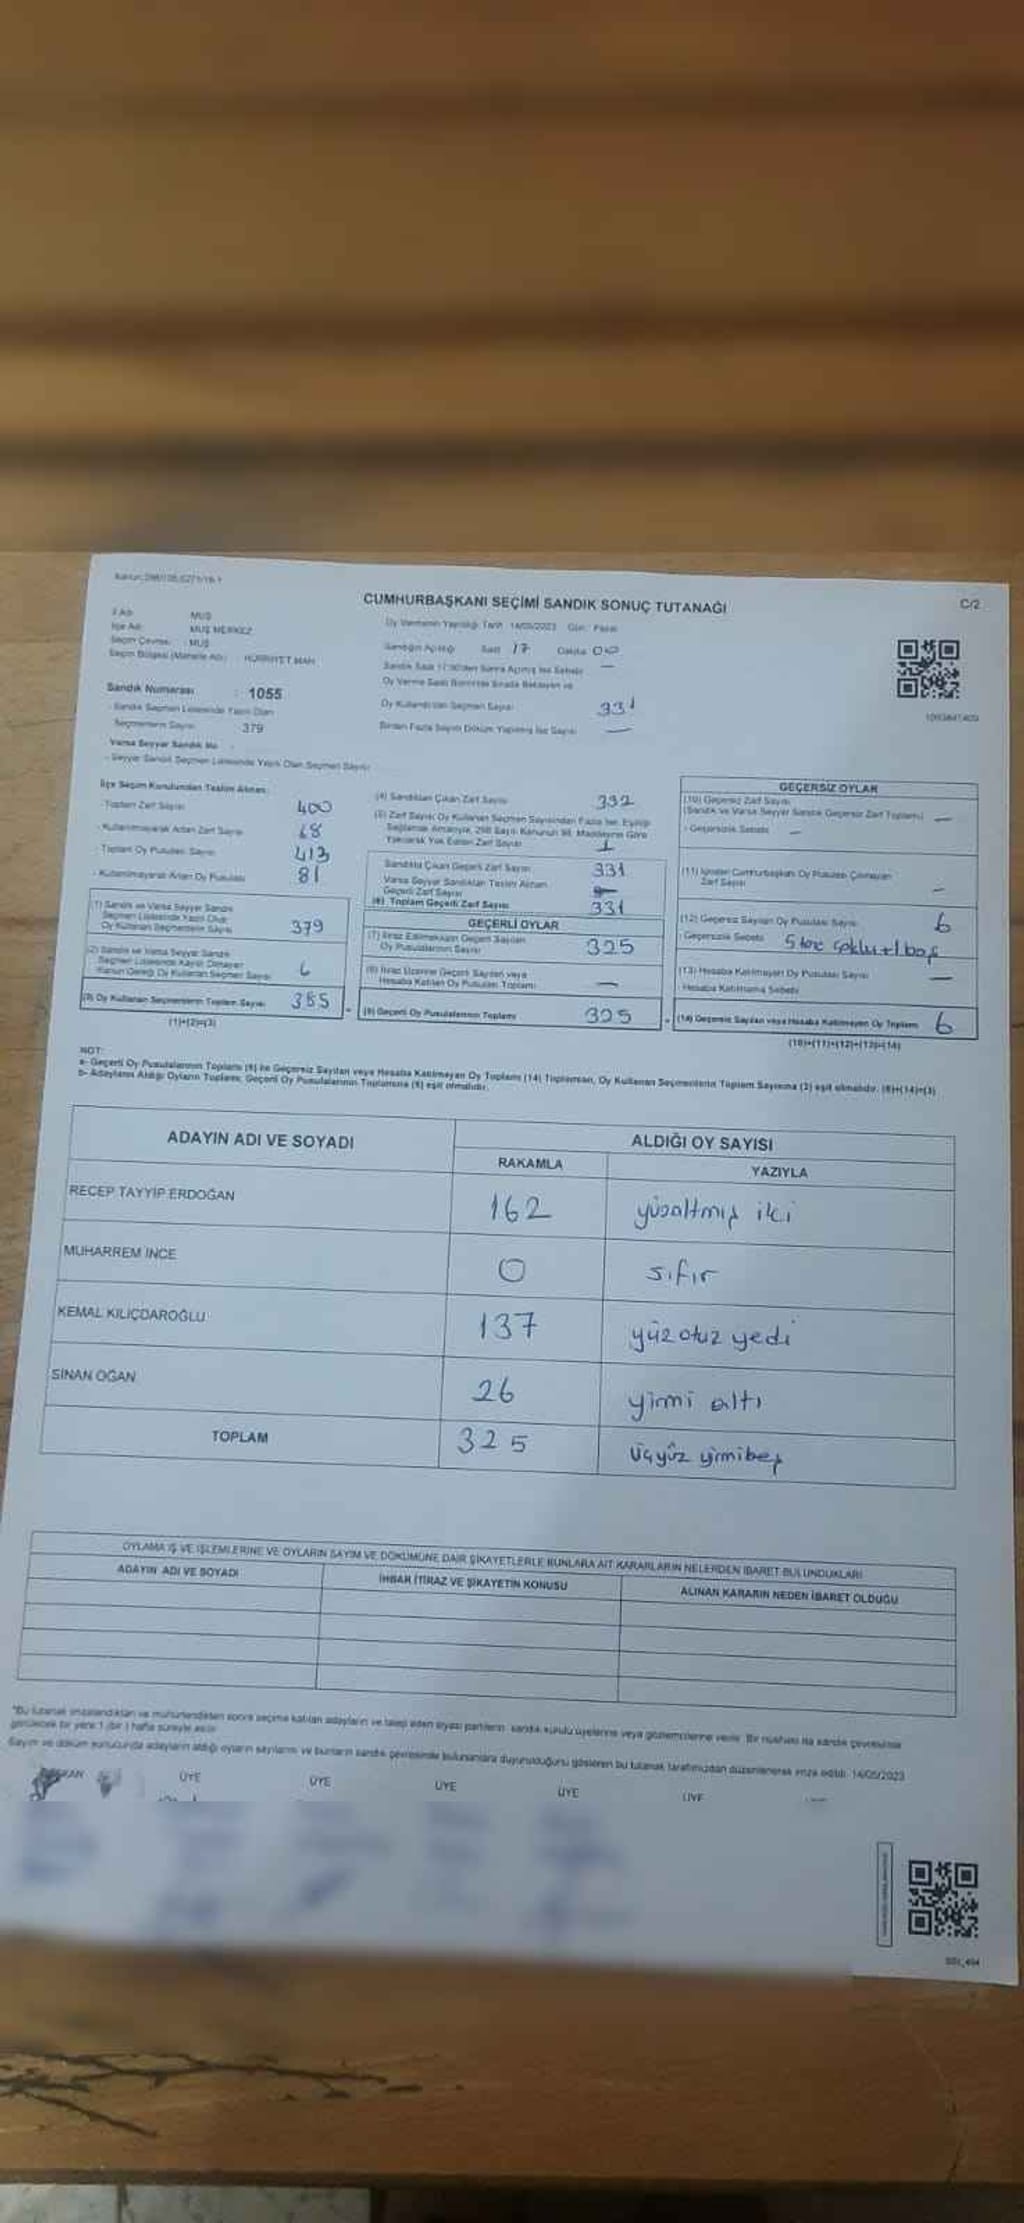 C/2
CUMHURBAŞKANI SEÇİMİ SANDIK SONUÇ TUTANAĞI
İl Adı MUŞ
İlçe Adı MUŞ MERKEZ
Seçim Çevresi MUŞ
Seçim Bölgesi (Mahalle Adı) HÜRRİYET MAH
Oy Vermenin Yapıldığı Tarih 14/05/2023 Gün: Pazar
Sandığın Açıldığı Saat 17 Dakika 00
Sandık Saat 17:00'den Sonra Açılmış İse Sebebi —
Sandık Numarası : 1055
Sandık Seçmen Listesinde Yazılı Olan
Seçmenlerin Sayısı 379
Oy Kullandırılan Seçmen Sayısı 331
Birden Fazla Sayım Döküm Yapılmış İse Sayısı —
Varsa Seyyar Sandık No
- Seyyar Sandık Seçmen Listesinde Yazılı Olan Seçmen Sayısı
İlçe Seçim Kurulundan Teslim Alınan
- Toplam Zarf Sayısı 400
- Kullanılmayarak Artan Zarf Sayısı 68
- Toplam Oy Pusulası Sayısı 413
- Kullanılmayarak Artan Oy Pusulası 81
(1) Sandık ve Varsa Seyyar Sandık
Seçmen Listesinde Yazılı Olup
Oy Kullanan Seçmenlerin Sayısı 379
(2) Sandık ve Varsa Seyyar Sandık
Seçmen Listesinde Kayıtlı Olmayan
Kanun Gereği Oy Kullanan Seçmen Sayısı 6
(3) Oy Kullanan Seçmenlerin Toplam Sayısı 385
(1)+(2)=(3)
(4) Sandıktan Çıkan Zarf Sayısı 332
(5) Zarf Sayısı Oy Kullanan Seçmen Sayısından Fazla İse, Eşitliği
Sağlamak Amacıyla, 298 Sayılı Kanunun 98. Maddesine Göre
Yakılarak Yok Edilen Zarf Sayısı 1
Sandıkta Çıkan Geçerli Zarf Sayısı 331
Varsa Seyyar Sandıktan Teslim Alınan
Geçerli Zarf Sayısı
(6) Toplam Geçerli Zarf Sayısı 331
GEÇERLİ OYLAR
(7) İtiraz Edilmeksizin Geçerli Sayılan
Oy Pusulalarının Sayısı 325
(8) İtiraz Üzerine Geçerli Sayılan veya
Hesaba Katılan Oy Pusulası Toplamı —
(9) Geçerli Oy Pusulalarının Toplamı 325
GEÇERSİZ OYLAR
(10) Geçersiz Zarf Sayısı
(Sandık ve Varsa Seyyar Sandık Geçersiz Zarf Toplamı) —
- Geçersizlik Sebebi —
(11) İçinden Cumhurbaşkanı Oy Pusulası Çıkmayan
Zarf Sayısı —
(12) Geçersiz Sayılan Oy Pusulası Sayısı 6
- Geçersizlik Sebebi 5 tane çoklu+1 boş
(13) Hesaba Katılmayan Oy Pusulası Sayısı —
Hesaba Katılmama Sebebi
(14) Geçersiz Sayılan veya Hesaba Katılmayan Oy Toplamı 6
(10)+(11)+(12)+(13)=(14)
NOT:
a- Geçerli Oy Pusulalarının Toplamı (9) ile Geçersiz Sayılan veya Hesaba Katılmayan Oy Toplamı (14) Toplamları, Oy Kullanan Seçmenlerin Toplam Sayısına (3) eşit olmalıdır. (9)+(14)=(3)
b- Adayların Aldığı Oyların Toplamı, Geçerli Oy Pusulalarının Toplamına (9) eşit olmalıdır.
ADAYIN ADI VE SOYADI
ALDIĞI OY SAYISI
RAKAMLA YAZIYLA
RECEP TAYYİP ERDOĞAN 162 yüzaltmış iki
MUHARREM İNCE 0 sıfır
KEMAL KILIÇDAROĞLU 137 yüz otuz yedi
SİNAN OĞAN 26 yirmi altı
TOPLAM 325 üçyüz yirmibeş
OYLAMA İŞ VE İŞLEMLERİNE VE OYLARIN SAYIM VE DÖKÜMÜNE DAİR ŞİKAYETLERLE BUNLARA AİT KARARLARIN NELERDEN İBARET BULUNDUKLARI
ADAYIN ADI VE SOYADI
İHBAR İTİRAZ VE ŞİKAYETİN KONUSU
ALINAN KARARIN NEDEN İBARET OLDUĞU
*Bu tutanak imzalandıktan ve mühürlendikten sonra seçime katılan adayların ve talep eden siyasi partilerin sandık kurulu üyelerine veya gözlemcilerine verilir. Bir nüshası da sandık çevresinde
görülecek bir yere 1 (bir) hafta süreyle asılır
Sayım ve döküm sonucunda adayların aldığı oyların sayılarını ve bunların sandık çevresinde bulunanlara duyurulduğunu gösteren bu tutanak tarafımızdan düzenlenerek imza edildi. 14/05/2023
ÜYE ÜYE ÜYE ÜYE ÜYE